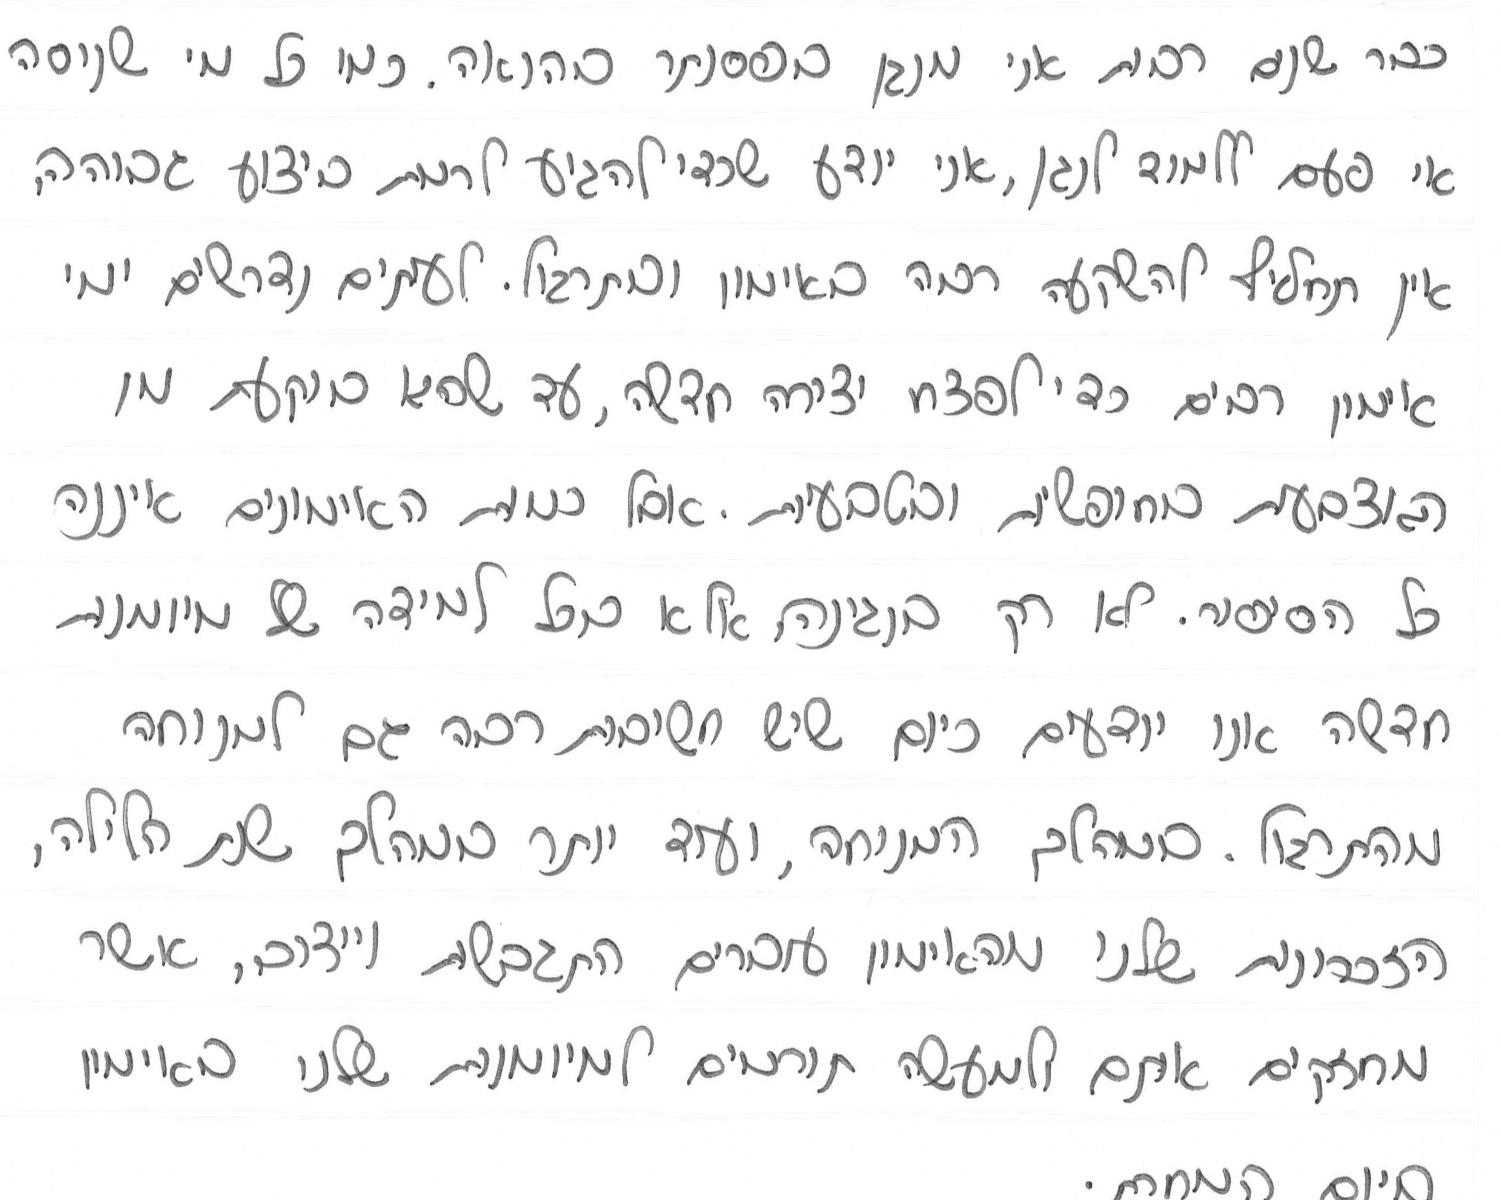 כבר שנים רבות אני מנגן בפסנתר בהנאה. כמו כל מי שניסה
אי פעם ללמוד לנגן, אני יודע שכדי להגיע לרמת ביצוע גבוהה,
אין תחליף להשקעה רבה באימון ובתרגול. לעתים נדרשים ימי
אימון רבים כדי לפצח יצירה חדשה, עד שהיא בוקעת מן
האצבעות בחופשיות ובטבעיות. אבל כמות האימונים איננה
כל הסיפור. לא רק בנגינה, אלא בכל למידה של מיומנות
חדשה אנו יודעים כיום שיש חשיבות רבה גם למנוחה
מהתרגול. במהלך המנוחה, ועוד יותר במהלך שנת הלילה,
הזכרונות שלנו מהאימון עוברים התגבשות וייצוב, אשר
מחזקים אותם ולמעשה תורמים למיומנות שלנו באימון
ביום המחרת.